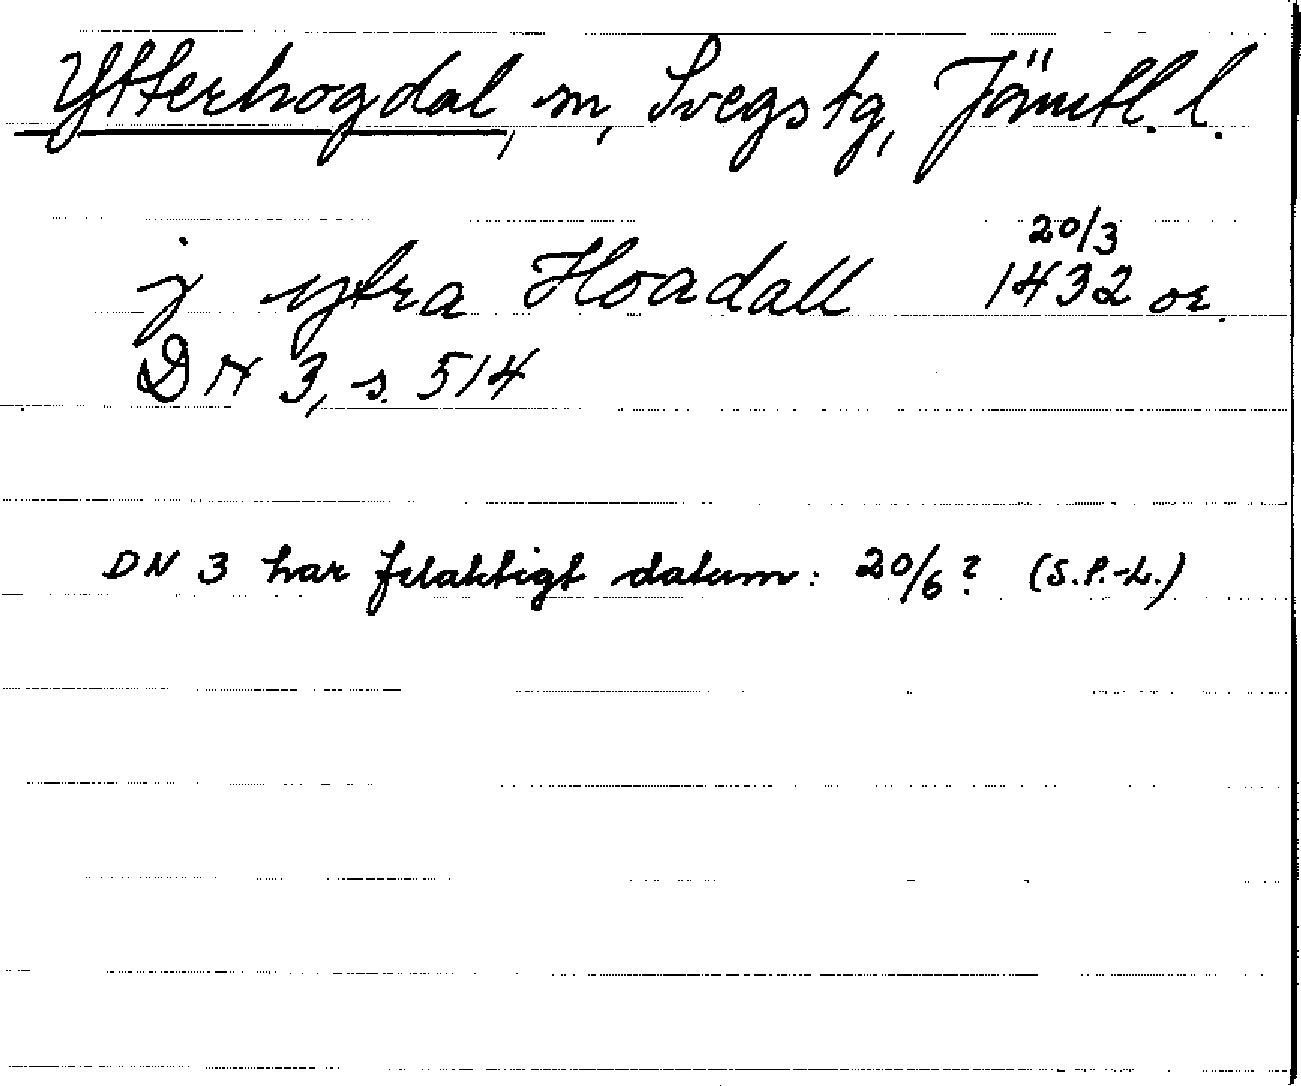 Ytterhogdal, sn, Svegs tg, Jämtl. l.
j ytra Hoadall 20/3 1432 or.
DN 3, s. 514
DN 3 har felaktigt datum: 20/6? (S.P.-L.)